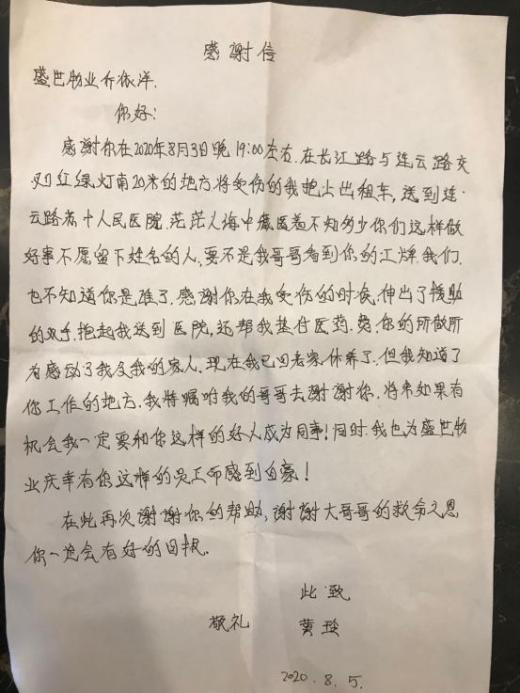 感谢信
盛世物业乔依洋.
你好:
感谢你在2020年8月3日晚19:00左右.在长江路与连云路交
叉口红绿灯南20米的地方将受伤的我抱上出租车,送到连
云路第十人民医院.茫茫人海中藏匿着不知多少你们这样做
好事不愿留下姓名的人,要不是我哥哥看到你的工牌.我们.
也不知道你是谁了.感谢你在我受伤的时候,伸出了援助
的双手.抱起我送到医院,还帮我垫付医药费,你的所做所
为感动了我及我的家人.现在我已回老家休养了.但我知道了
你工作的地方.我特嘱咐我的哥哥去谢谢你.将来如果有
机会我一定要和你这样的好人成为同事!同时.我也为盛世物
业庆幸有你这样的员工而感到自豪!
在此再次谢谢你的帮助,谢谢大哥哥的救命之恩
你一定会有好的回报.
此致
敬礼 黄
2020.8.5.